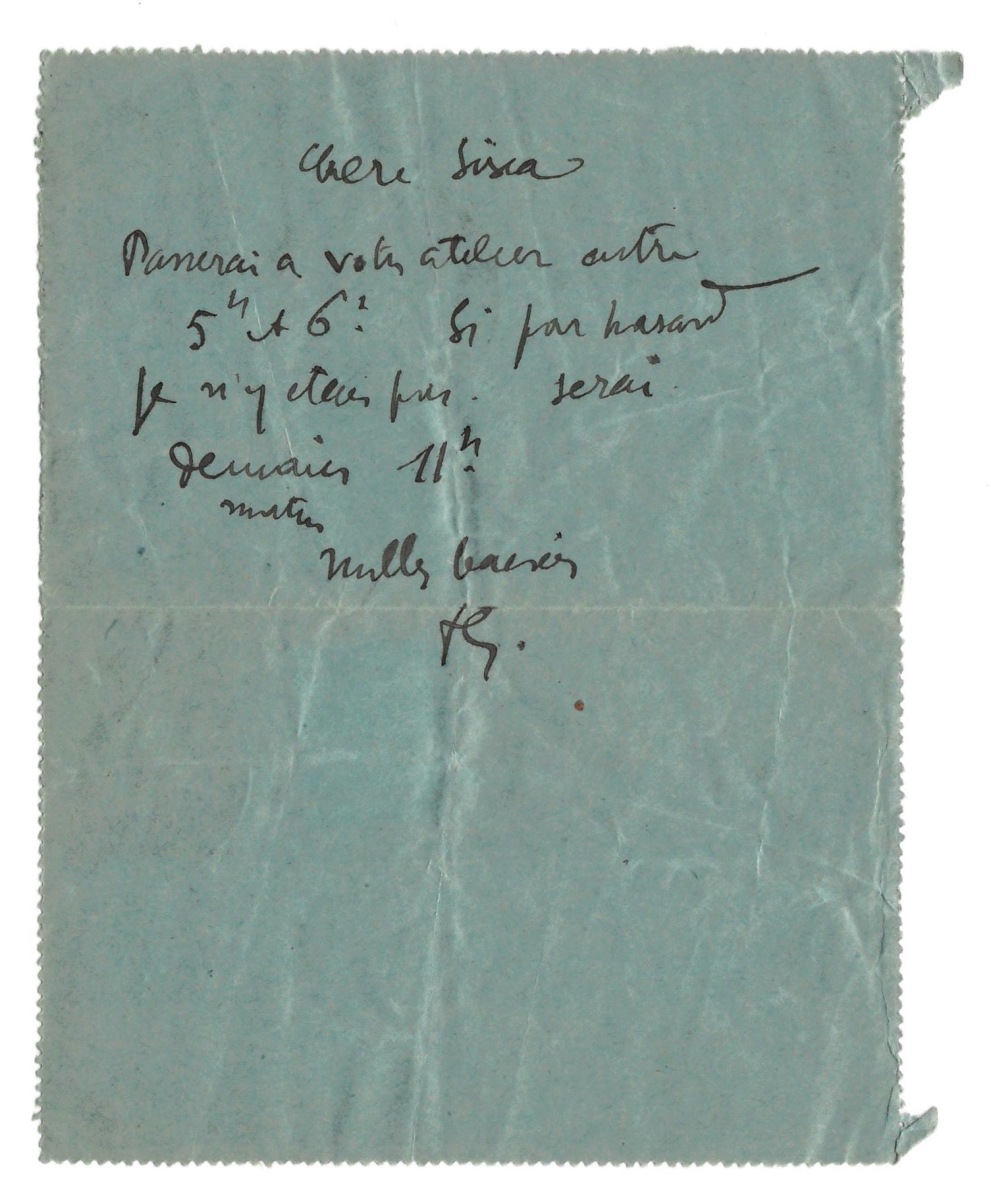 Chere Sisca
Passerai a votre atelier entre
5h et 6h. Si par hasard
je n'y etais pas. serai
demain 11h.
matin
Milles baisers